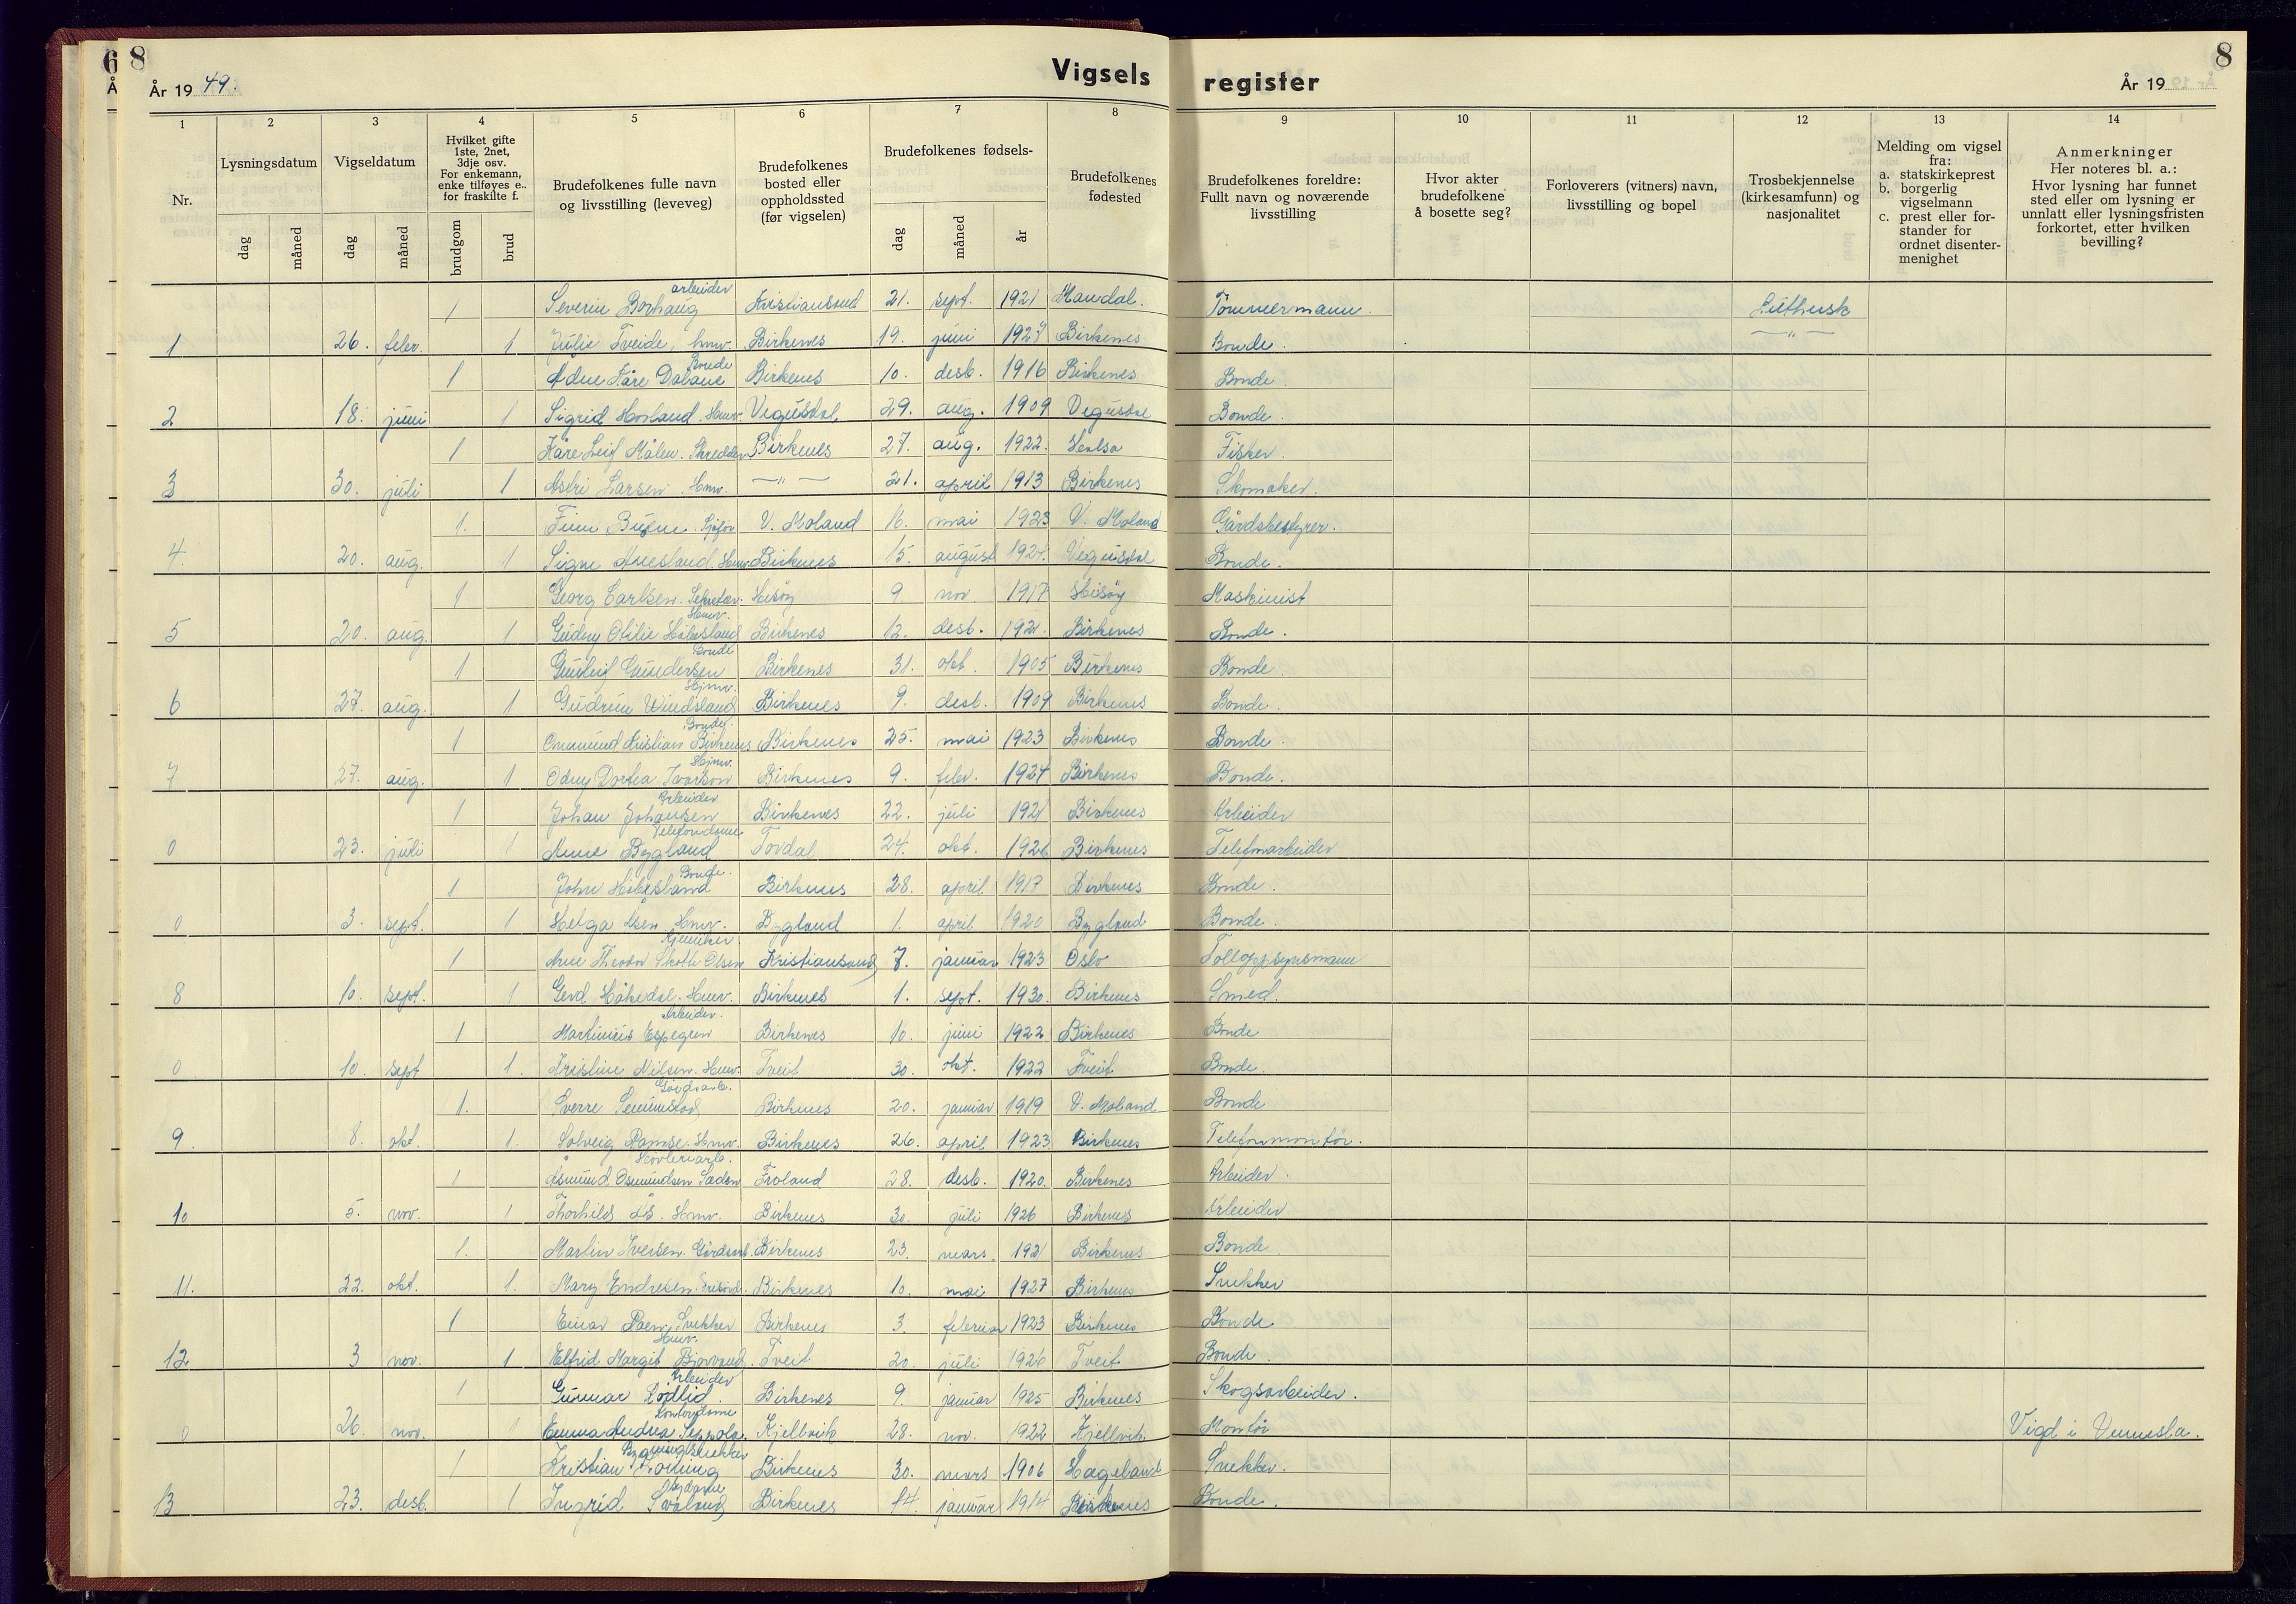 6 8
År 1949. Vigsels register År 19 8
1 2 3 4 5 6 7 8 9 10 11 12 13 14
Nr. Lysningsdatum Vigseldatum
Hvilket gifte 1ste, 2net, 3dje osv. For enkemann, enke tilføyes e.. for fraskilte f.
Brudefolkenes fulle navn og livsstilling (leveveg)
Brudefolkenes bosted eller oppholdssted (før vigselen)
Brudefolkenes fødsels-
Brudefolkenes fødested
Brudefolkenes foreldre: Fullt navn og noværende livsstilling
Hvor akter brudefolkene å bosette seg?
Forloverers (vitners) navn, livsstilling og bopel
Trosbekjennelse (kirkesamfunn) og nasjonalitet
Melding om vigsel fra: a. statskirkeprest b. borgerlig vigselmann c. prest eller forstander for ordnet disentermenighet
Anmerkninger Her noteres bl. a.: Hvor lysning har funnet sted eller om lysning er unnlatt eller lysningsfristen forkortet, etter hvilken bevilling?
dag måned dag måned brudgom brud dag måned år
1 Severin Borhaug arbeider Kristiansand 21. sept. 1921 Mandal. Tömmermann. Luthersk
1 26. febr. 1 Julie Tveide, hmv. Birkenes 19. juni 1927 Birkenes Bonde. — " —
1 Adne Kåre Dalane Bonde Birkenes 10. desb. 1916 Birkenes Bonde.
2 18. juni 1 Sigrid Hovland. Hmv. Vegusdal 29. aug. 1909 Vegusdal Bonde.
1 Kåre Leif Målen. Skredder Birkenes 27. aug. 1922. Fisker.
3 30. juli 1 Astri Larsen. Hmv. — " — 21. april 1913 Birkenes Skomaker.
1. Finn Sjåför V. Moland 16. mai 1923 V. Moland Gårdsbestyrer.
4 20. aug. 1 Signe Hmv. Birkenes 15. august 1924. Vegusdal Bonde.
1 Georg Carlsen. Sekretær. Hisöy 9 nov 1917 Hisöy Maskinist
5 20. aug. 1 Gudny Otilie Håbesland Hmv. Birkenes 12. desb. 1921. Birkenes Bonde.
1 Gunleif Gundersen Bonde Birkenes 31. okt. 1905 Birkenes Bonde.
6 27. aug. 1 Gudrun Windsland Hjmv. Birkenes 9. desb. 1909 Birkenes Bonde.
1 Ommund Kristian Birkenes Bonde. Birkenes 25. mai 1923 Birkenes Bonde.
7 27. aug. 1 Odny Dortea Ivarson Hjmv. Birkenes 9. febr. 1924 Birkenes Bonde.
1 Johan Johansen Arbeider Birkenes 22. juli 1921 Birkenes Arbeider
0 23. juli 1 Anne Bygland Telefondame Tovdal 24. okt. 1926 Birkenes Telefonarbeider
1 John Håbesland Bonde. Birkenes 28. april 1917 Birkenes Bonde.
0 3. sept. 1 Helga Hmv. Bygland 1. april 1920 Bygland Bonde.
1 Arne Theodor Olsen Kjemiker Kristiansand 7. januar 1923 Oslo Tolloppsynsmann
8 10. sept. 1 Gerd Håkedal. Hmv. Birkenes 1. sept. 1930. Birkenes Smed.
1 Martinius Espegren Arbeider. Birkenes 10. juni 1922 Birkenes Bonde
0 10. sept 1. Kristine Nilsen. Hmv. Tveit 30. okt. 1922 Tveit Bonde.
1. Sverre Gårdsarb. Birkenes 20. januar 1919 V. Moland Bonde
9. 8. okt. 1. Solveig Ramse. Hmv. Birkenes 26. april 1923 Birkenes Telefonmontör.
1 Åsmund Osmundsen Høvleriarb. Froland 28. desb. 1920. Birkenes Arbeider.
10 5. nov. 1 Thorhild Ås. Hmv. Birkenes 30. juli 1926 Birkenes Arbeider.
1. Martin Iversen. Gårdsarb. Birkenes 23. mars. 1921 Birkenes Bonde
11. 22. okt. 1. Mary Endresen. Birkenes 10. mai 1927 Birkenes Snekker
1 Einar Snekker Birkenes 3. februar 1923 Birkenes Bonde
12 3 nov. 1 Elfrid Margit Bjorvand Hmv. Tveit 20. juli 1926 Tveit Bonde.
1 Gunnar Rødlid. Arbeider Birkenes 9. januar 1925 Birkenes Skogsarbeider.
0 26. nov. 1 Emma Andrea Seppola. Kontordame Kjellvik 28. nov. 1922 Kjellvik Montör Vigd i Vennesla.
1 Kristian Bygningssnekker Birkenes 30. mars 1906 Hægeland Snekker.
13 23. desb. 1 Ingrid Svaland Birkenes 14. januar 1914 Birkenes Bonde.